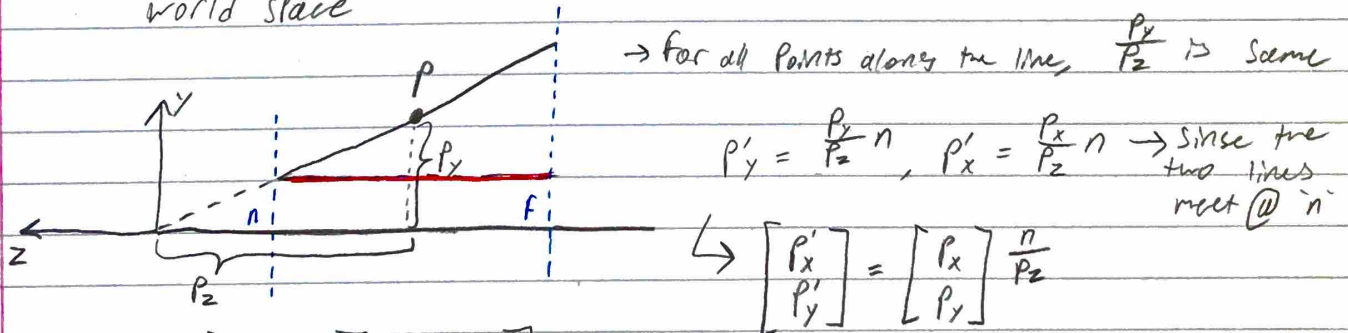 world space
→ for all Points along the line, Py/Pz is same
P
Y
Py
P'y = Py/Pz n, P'x = Px/Pz n → Sinse the
two lines
meet @ 'n'
n
F
Z
Pz
↳ [P'x P'y] = [Px Py] n/Pz